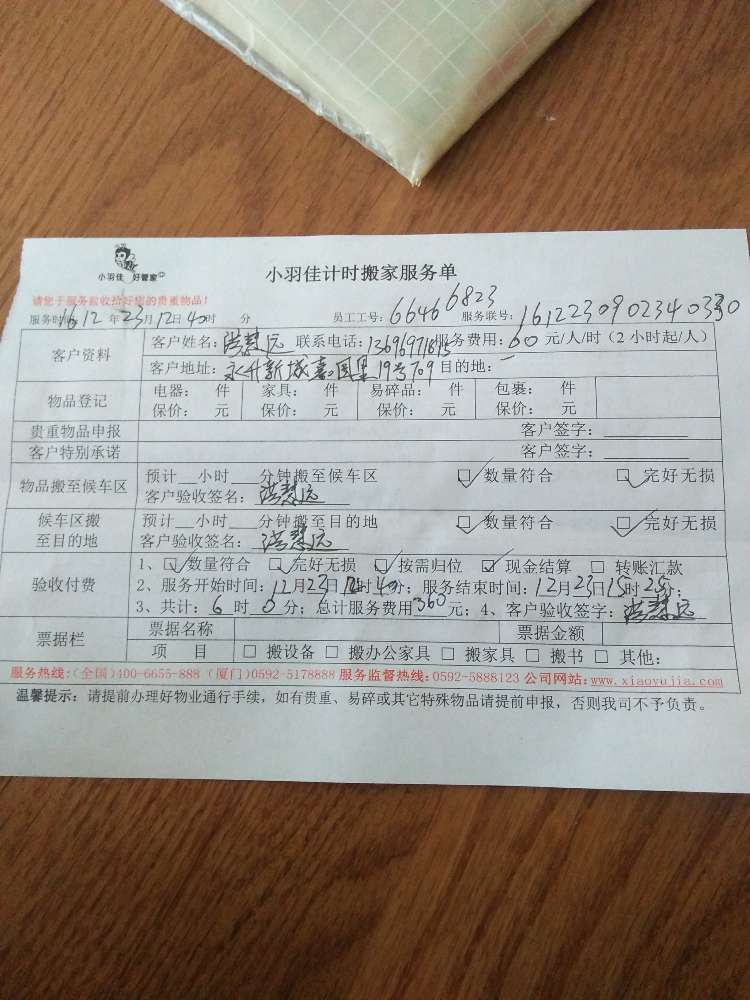 小羽佳 好管家
小羽佳计时搬家服务单
请您于服务前收拾好您的贵重物品！
服务时间16年12月23日12时40分 员工工号：6646 6823 服务联号：1612230902340330
客户资料 客户姓名：洪慧远 联系电话：13696971815 服务费用：60元/人/时（2小时起/人）
客户地址：永升新城嘉园里19号709 目的地：
物品登记 电器： 件 家具： 件 易碎品： 件 包裹： 件
保价： 元 保价： 元 保价： 元 保价： 元
贵重物品申报 客户签字：
客户特别承诺 客户签字：
物品搬至候车区 预计__小时__分钟搬至候车区 ☑数量符合 ☑完好无损
客户验收签名：洪慧远
候车区搬至目的地 预计__小时__分钟搬至目的地 ☑数量符合 ☑完好无损
客户验收签名：洪慧远
验收付费 1、☑数量符合 ☑完好无损 ☑按需归位 ☑现金结算 □转账汇款
2、服务开始时间：12月23日12时40分；服务结束时间：12月23日15时25分；
3、共计：6时0分；总计服务费用360元；4、客户验收签字：洪慧远
票据栏 票据名称 票据金额
项 目 □搬设备 □搬办公家具 □搬家具 □搬书 □其他：
服务热线：（全国）400-6655-888（厦门）0592-5178888 服务监督热线：0592-5888123 公司网站：www.xiaoyujia.com
温馨提示：请提前办理好物业通行手续，如有贵重、易碎或其它特殊物品请提前申报，否则我司不予负责。